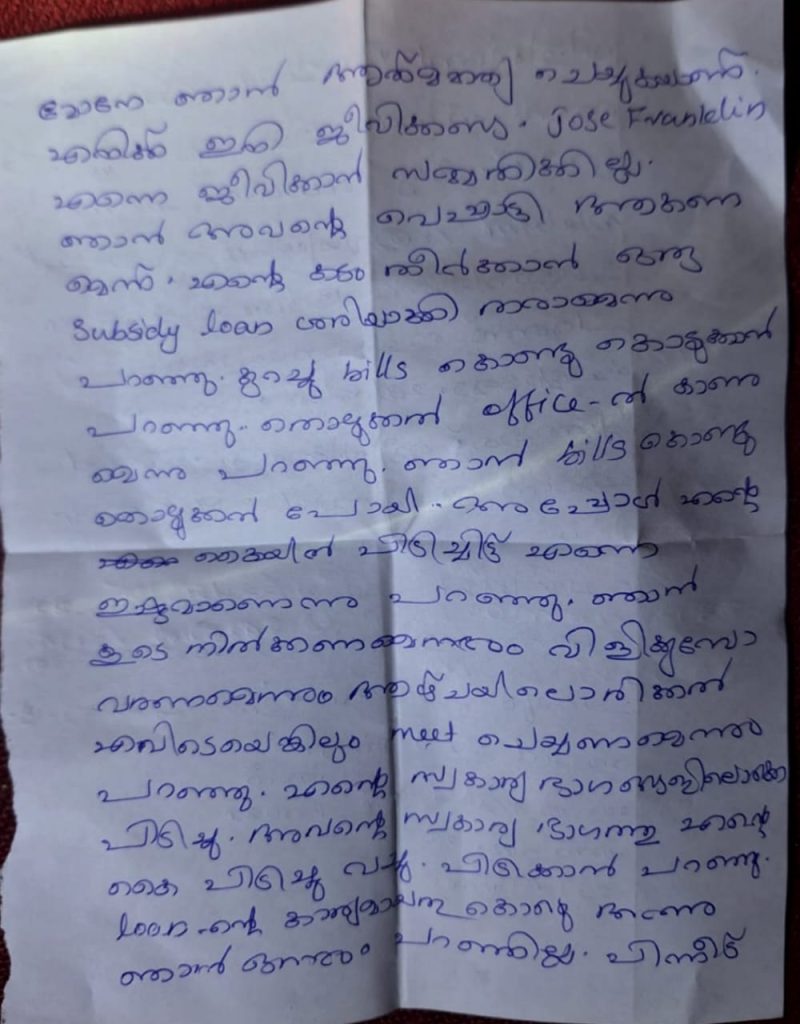 മോനേ ഞാൻ ആത്മഹത്യ ചെയ്യുകയാണ്.
എനിക്ക് ഇനി ജീവിക്കണ്ട. Jose Franklin
എന്നെ ജീവിക്കാൻ സമ്മതിക്കില്ല.
ഞാൻ അവന്റെ വെപ്പാട്ടി ആകണ
മെന്ന്. എന്റെ കടം തീർക്കാൻ ഒരു
Subsidy loan ശരിയാക്കി തരാമെന്നു
പറഞ്ഞു. കുറച്ചു bills കൊണ്ടു കൊടുക്കാൻ
പറഞ്ഞു. കൊടുക്കാൻ office-ൽ കാണു
മെന്നു പറഞ്ഞു. ഞാൻ bills കൊണ്ടു
കൊടുക്കാൻ പോയി. അപ്പോൾ എന്റെ
കൈയിൽ പിടിച്ചിട്ട് എന്നെ
ഇഷ്ടമാണെന്നു പറഞ്ഞു. ഞാൻ
കൂടെ നിൽക്കണമെന്നും വിളിക്കുമ്പോ
വരണമെന്നും ആഴ്ചയിലൊരിക്കൽ
എവിടെയെങ്കിലും meet ചെയ്യണമെന്നും
പറഞ്ഞു. എന്റെ സ്വകാര്യ ഭാഗങ്ങളിലൊക്കെ
പിടിച്ചു. അവന്റെ സ്വകാര്യ ഭാഗത്തു എന്റെ
കൈ പിടിച്ചു വച്ചു. പിടിക്കാൻ പറഞ്ഞു.
loan-ന്റെ കാര്യമായതു കൊണ്ടു അന്നു
ഞാൻ ഒന്നും പറഞ്ഞില്ല. പിന്നീട്